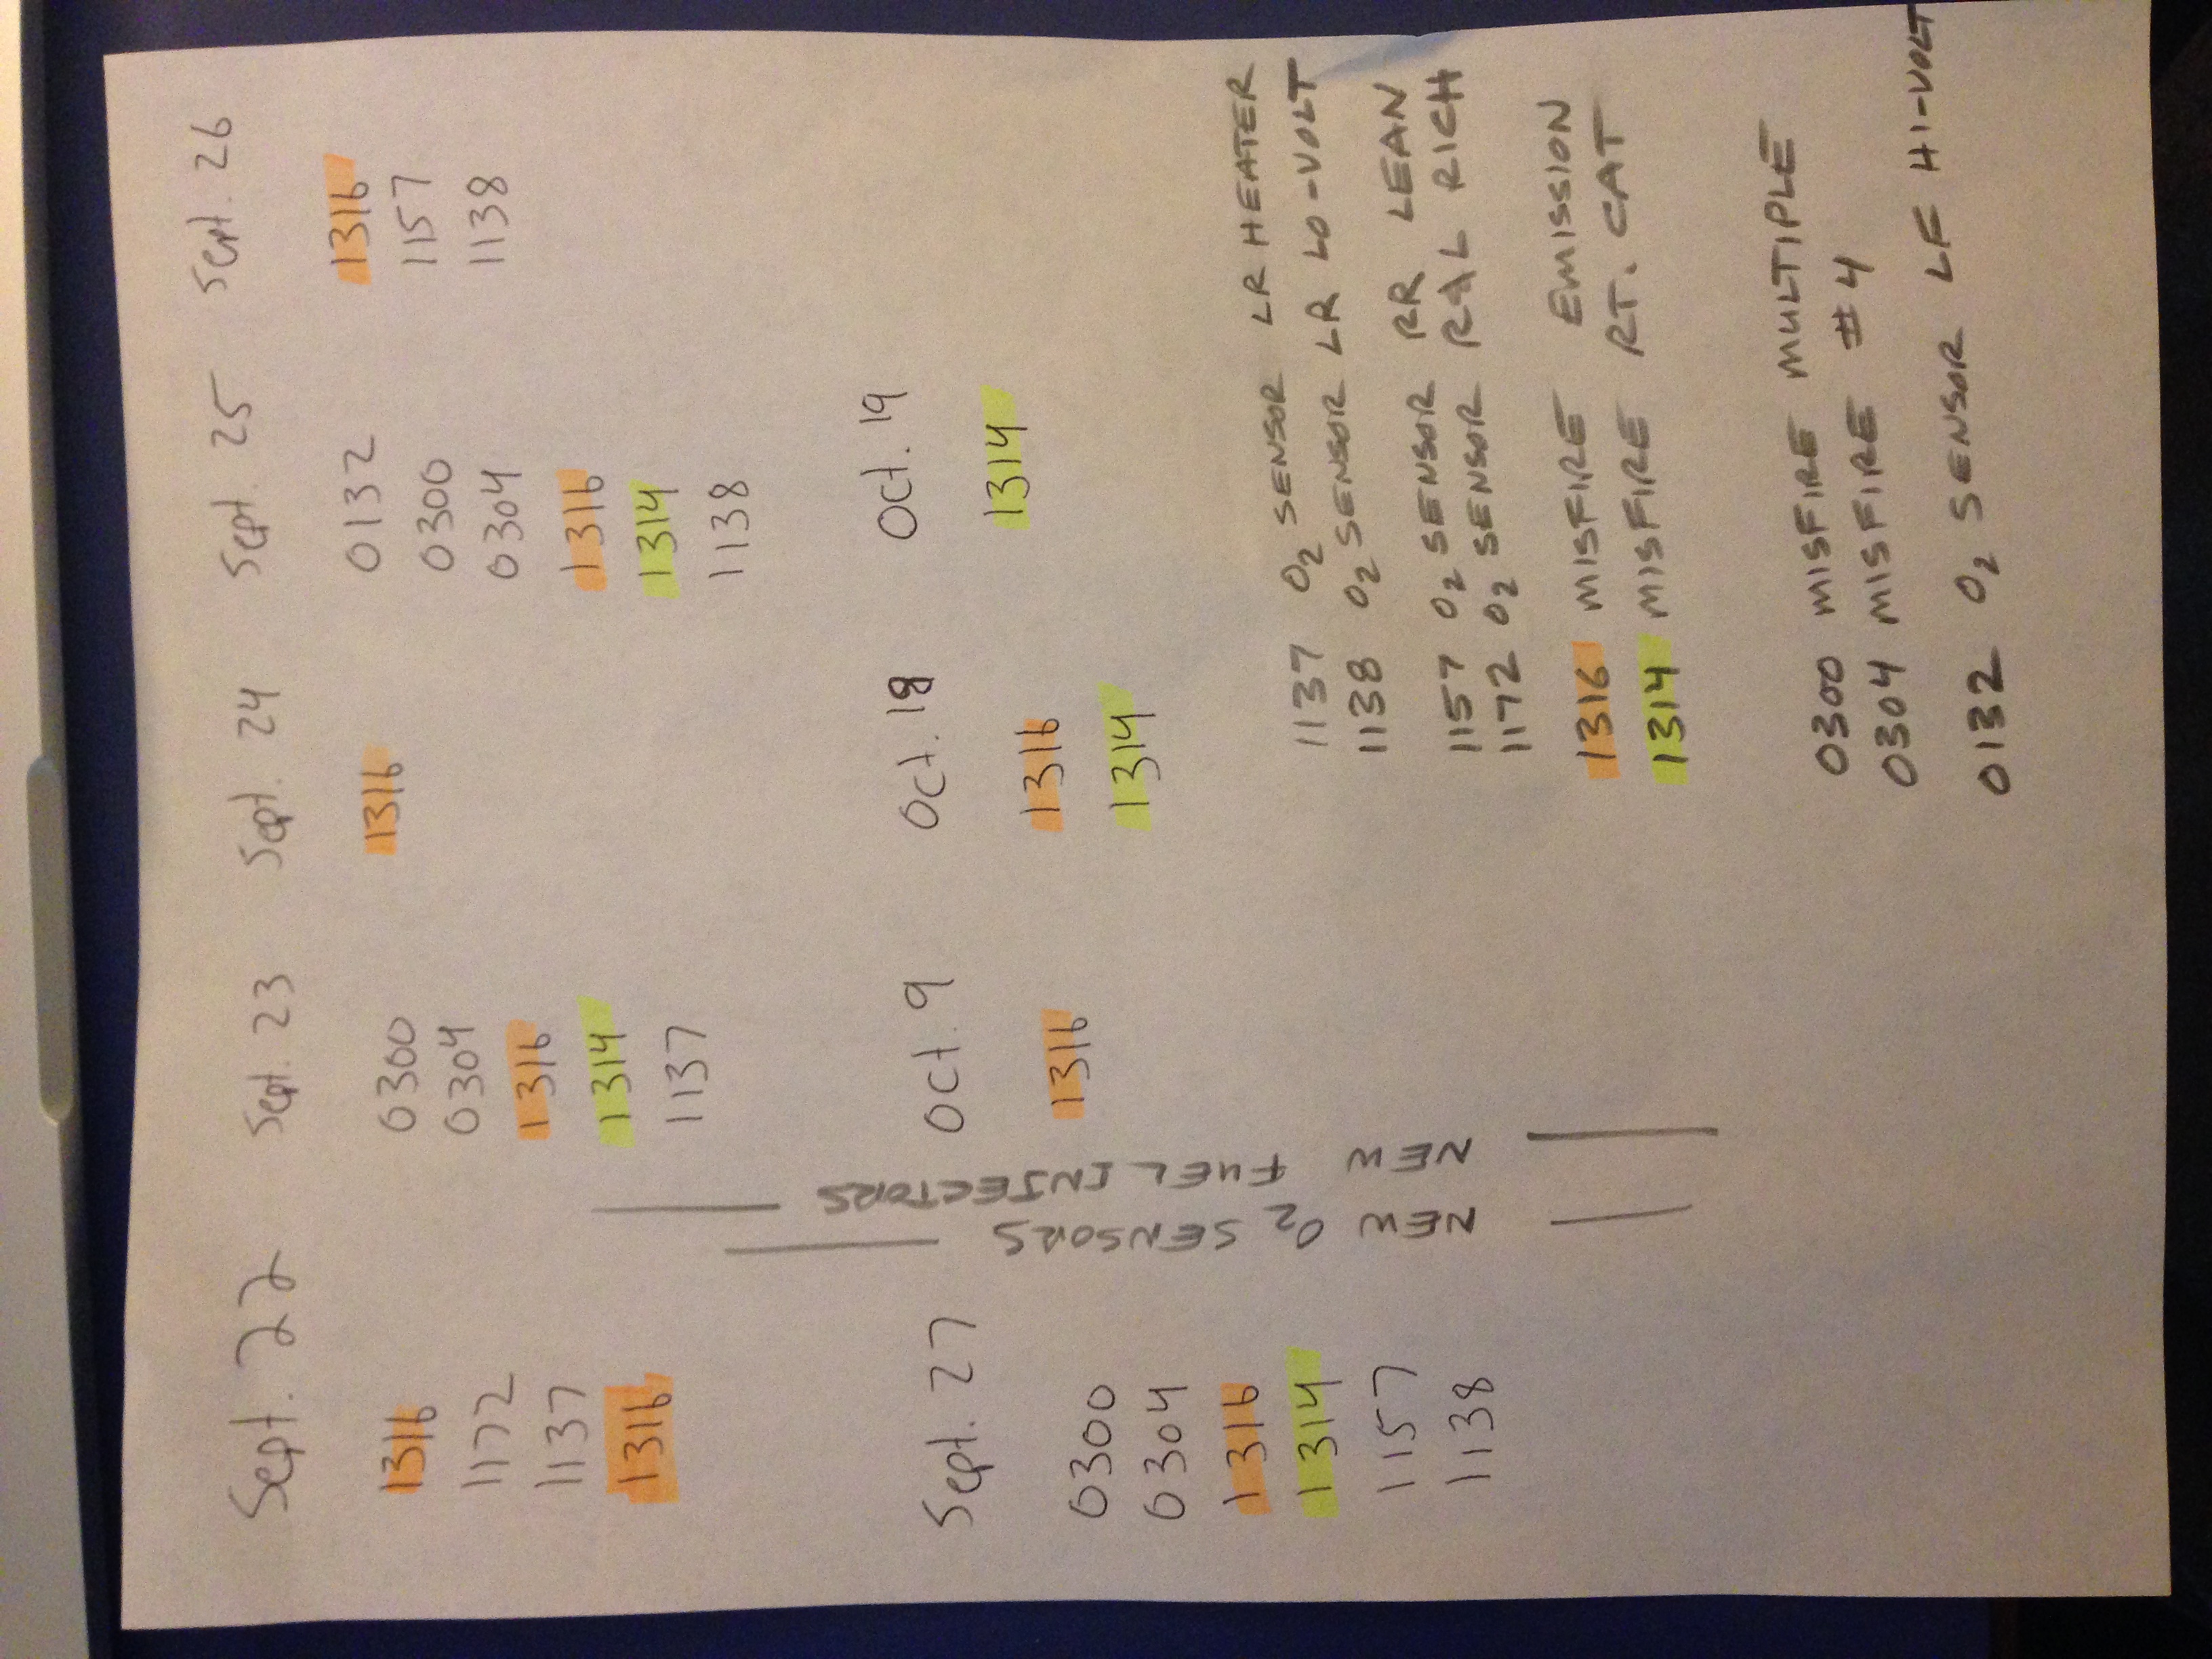 Sept. 22
1316
1172
1137
1316
Sept. 23
0300
0304
1316
1314
1137
Sept. 24
1316
Sept. 25
0132
0300
0304
1316
1314
1138
Sept. 26
1316
1157
1138
Sept. 27
0300
0304
1316
1314
1157
1138
NEW O2 SENSORS
NEW FUEL INJECTORS
Oct. 9
1316
Oct. 18
1316
1314
Oct. 19
1314
1137 O2 SENSOR LR HEATER
1138 O2 SENSOR LR LO-VOLT
1157 O2 SENSOR RR LEAN
1172 O2 SENSOR R&L RICH
1316 MISFIRE EMISSION
1314 MISFIRE RT. CAT
0300 MISFIRE MULTIPLE
0304 MISFIRE #4
0132 O2 SENSOR LF HI-VOLT